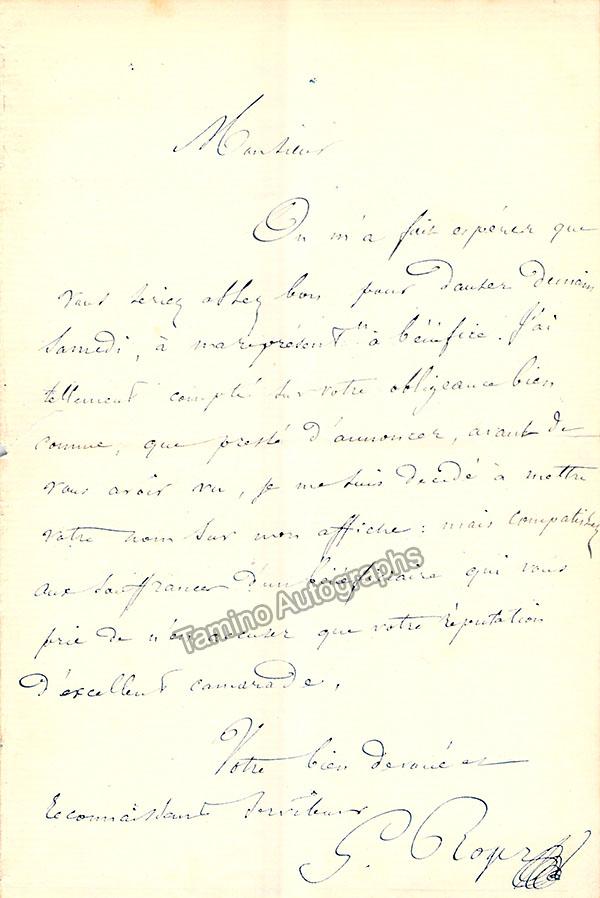 Monsieur
On m'a fait espérer que
vous seriez assez bon pour danser demain
Samedi, à ma représent.on à bénéfice. J'ai
tellement compté sur votre obligeance bien
connue, que pressé d'annoncer, avant de
vous avoir vu, je me suis décidé à mettre
votre nom sur mon affiche : mais compatissez
aux souffrances d'un bénéficiaire qui vous
prie de n'en accuser que votre réputation
d'excellent camarade.
Votre bien dévoué et
reconnaissant serviteur
G. Roger
Tamino Autographs